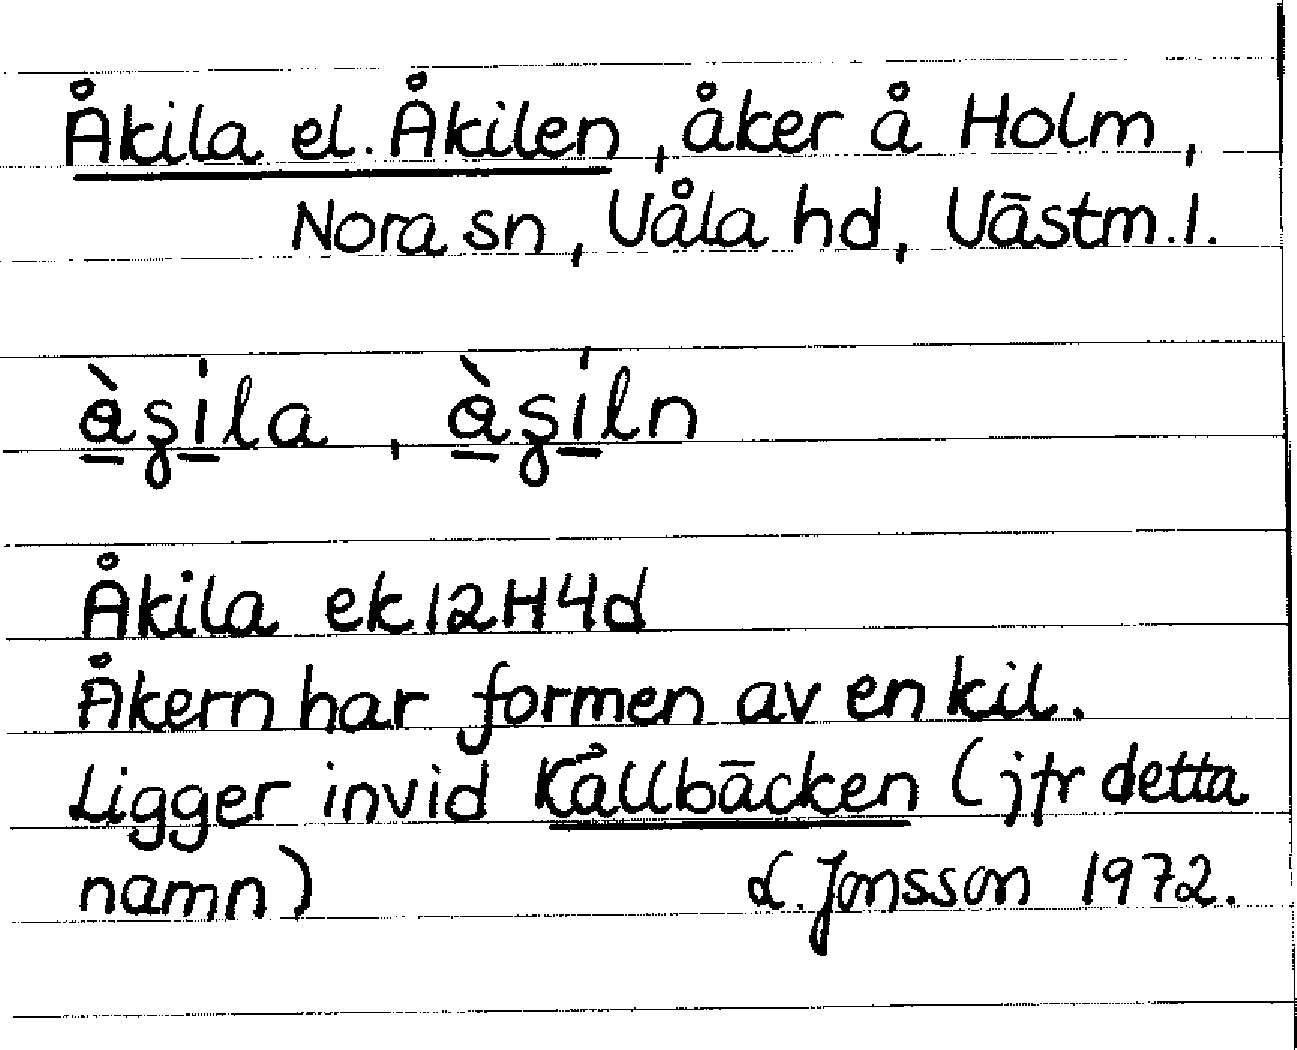 Åkila el. Åkilen, åker å Holm,
Nora sn, Våla hd, Västm. l.
Åkila ek 12H4d
Åkern har formen av en kil.
Ligger invid Källbäcken (jfr detta
namn) L. Jonsson 1972.